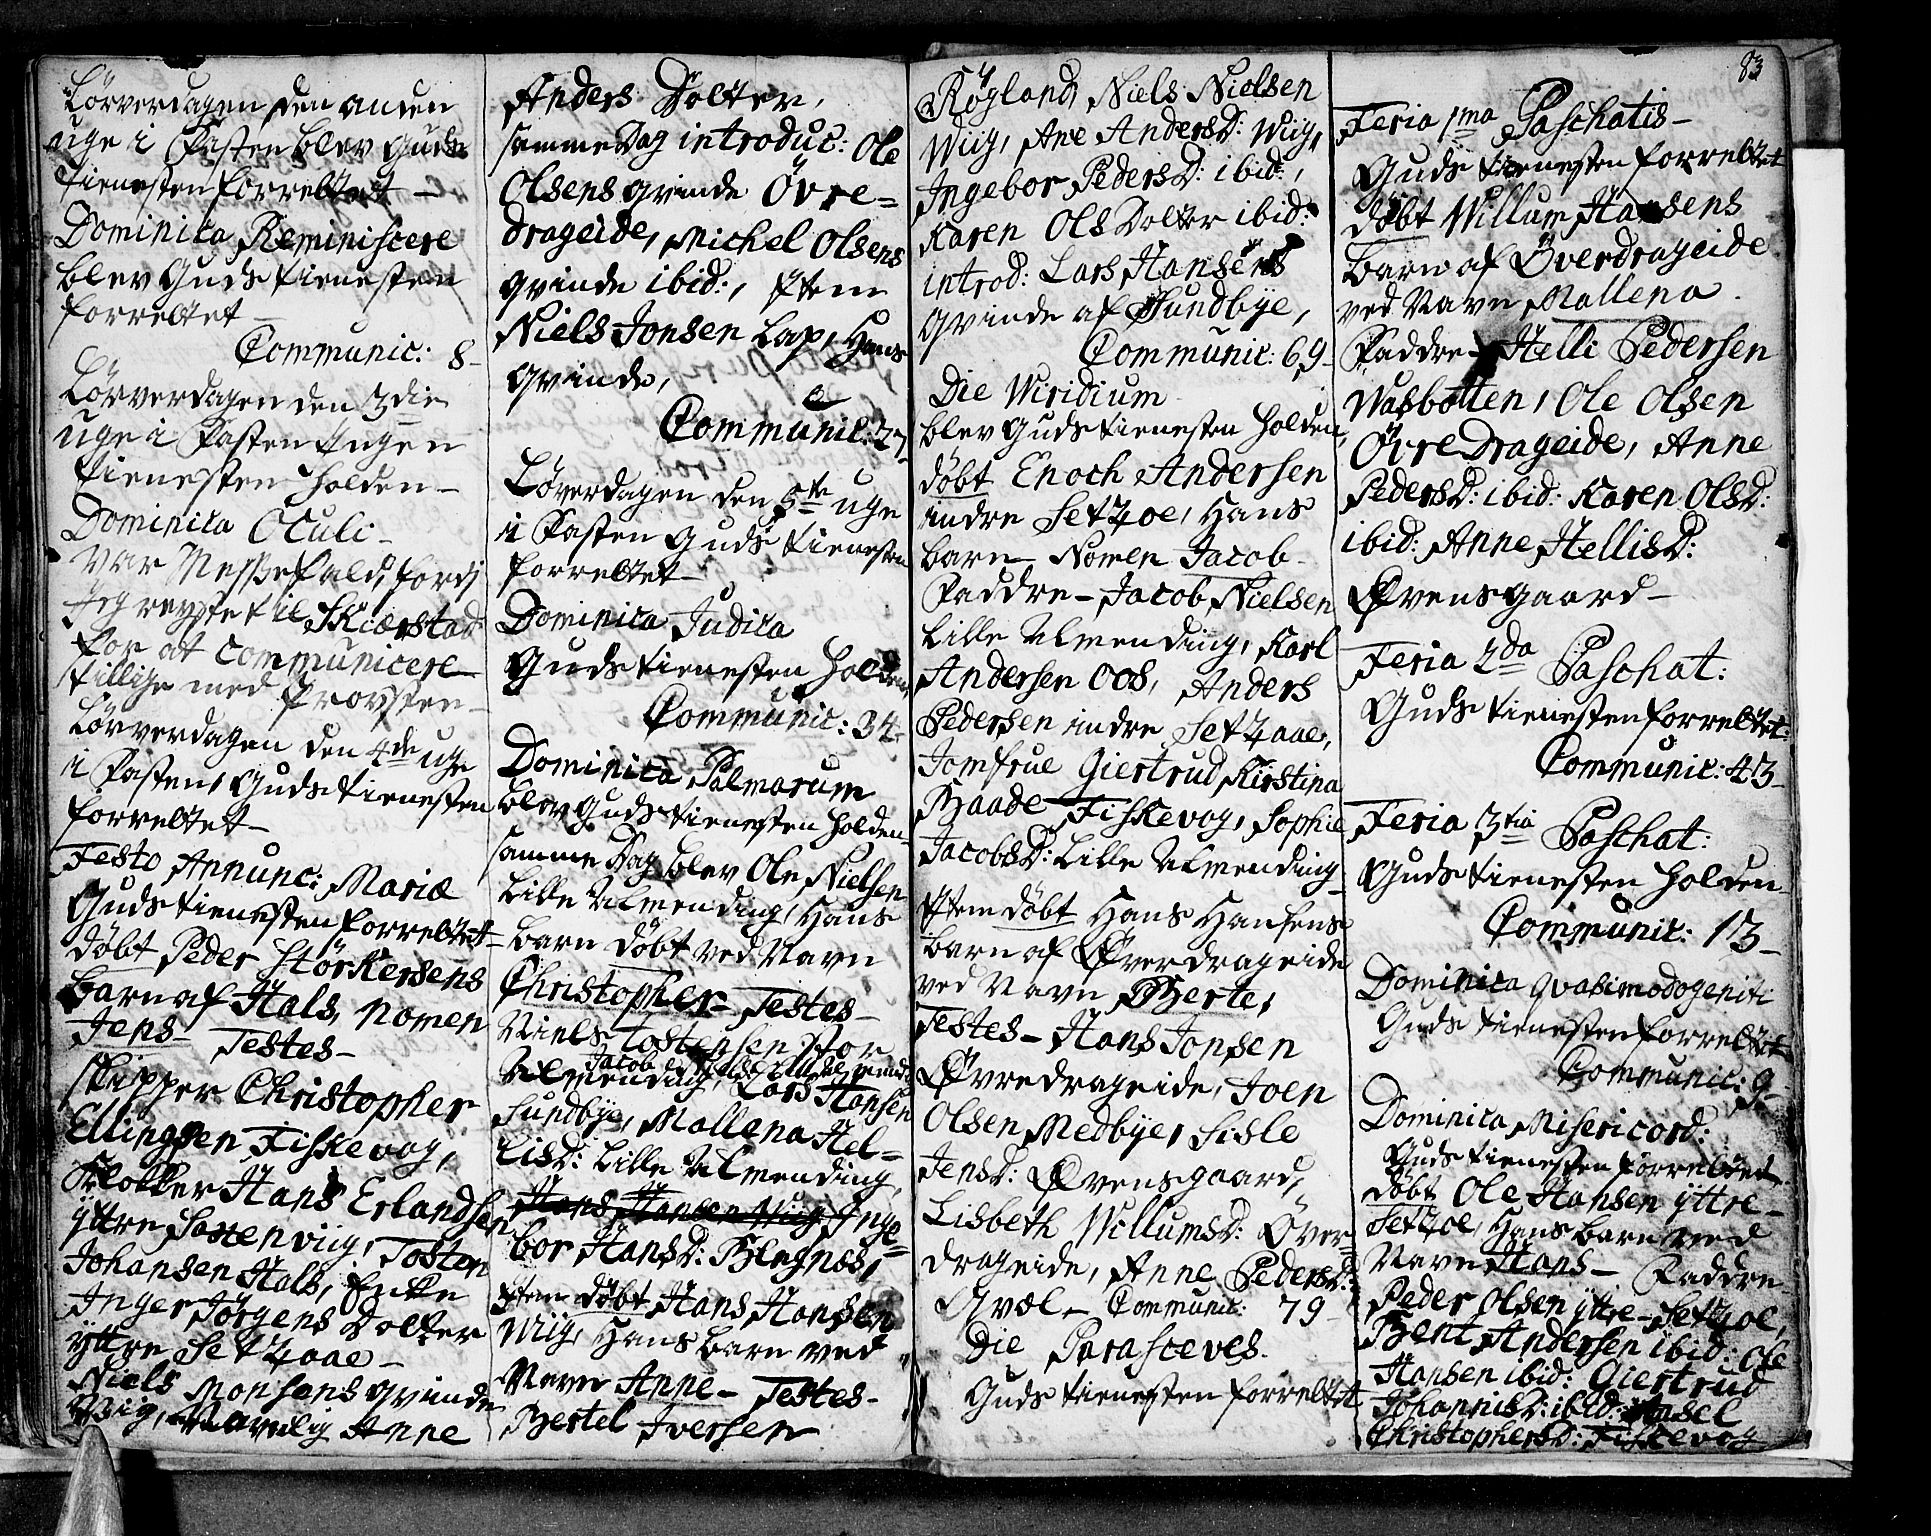 Lörverdagen den anden
uge i Fasten blev Guds
tienesten forrettet –
Dominica Reminiscere
blev Guds tienesten
forrettet –
Communic: 8–
Lörverdagen den 3die
uge i Fasten Ingen
tienesten holden –
Dominica Oculi –
var Messefald, fordj
Jeg reyste til Skierstad
for at communicere
tillige med Provsten –
Lörverdagen den 4de uge
i Fasten, Guds tienesten
forrettet –
Festo Annunc: Mariæ
Guds tienesten forrettet –
döbt Peder Störkersens
barn af Hals, nomen
Jens – Testes –
Skipper Christopher
Ellingsen Fiskevog,
Klokker Hans Erlandsen
yttre Sottenviig, Tosten
Johansen Hals, Enke
Inger Jörgens Dolter
yttre Setzaae –
Niels Monsens qvinde
Viig, Navnlig Anne
Anders Dolter,
samme Dag introduc: Ole
Olsens qvinde Övre=
drageide, Michel Olsens
qvinde ibid:, Item
Niels Jonsen Lap, Hans
qvinde,
Communic: 27
Löverdagen den 5te uge
i Fasten Guds tienesten
forrettet –
Dominica Judica
Guds tienesten holden,
Communic: 34–
Dominica Palmarum
blev Guds tienesten holden,
samme Dag blev Ole Nielsen
Lille Almending, Hans
barn döbt ved Navn
Christopher – Testes –
Niels Tostensen Stor
Jacob Nielsen Lille Almend
Almending, Lars Hansen
Sundbye, Mallena Hel=
lisD: Lille Almending,
Hans Hansen Viig Inge=
bor HansD: Blegnes,
Item döbt Hans Hansen
Wiig, Hans barn ved
Navn Anne – Testes –
Bertel Iversen
Rögland, Niels Nielsen
Wiig, Ane AndersD: Wiig,
Ingebor PedersD: ibid:,
Karen Ols Dolter ibid:
introd: Lars Hansens
qvinde af Sundbye,
Communic: 69–
Die Viridium
blev Guds tienesten holden,
döbt Enoch Andersen
indre Setzoe, Hans
barn – Nomen Jacob –
Faddre – Jacob Nielsen
Lille Almending, Karl
Andersen Oos, Anders
Pedersen indre Setzaae,
Jomfrue Giertrud Kirstina
Baade Fiskevog, Sophie
JacobsD: Lille Almending
Item döbt Hans Hansens
barn af Øverdrageide
ved Navn Berte,
Testes – Hans Jonsen
Øvredrageide, Joen
Olsen Medbye, Sisle
JensD: Øvensgaard,
Lisbeth WillumsD: Över=
drageide, Anne PedersD:
Qvæl – Communic: 79–
Die Parasceves.
Guds tienesten forrettet
83
Feria 1ma Paschatis –
Guds tienesten forrettet
döbt Willum Hansens
barn af Överdrageide
ved Navn Mallena.
Faddre – Helli Pedersen
Vasbotten, Ole Olsen
Övre Drageide, Anne
PedersD: ibid: Karen OlsD:
ibid: Anne HellisD:
Øvensgaard –
Feria 2da Paschat:
Guds tienesten forrettet:
Communic: 43–
Feria 3tia Paschat:
Guds tienesten holden
Communic: 13–
Dominica Qvasimodogeniti
Guds tienesten forrettet
Communic: 9–
Dominica Misericord:
Guds tienesten forrettet
döbt Ole Hansen yttre –
Setzoe, Hans barn ved
Navn Hans – Faddre
Peder Olsen yttre – Setzoe,
Bent Andersen ibid: Ole
Hansen ibid: Giertrud
JohannisD: ibid:
ChristophersD: Fiskevog